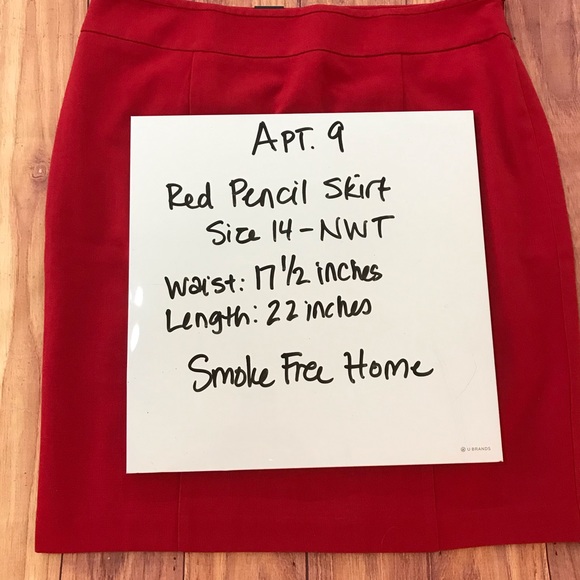 APT. 9
Red Pencil Skirt
Size 14 - NWT
Waist: 17 1/2 inches
Length: 22 inches
Smoke Free Home
U BRANDS